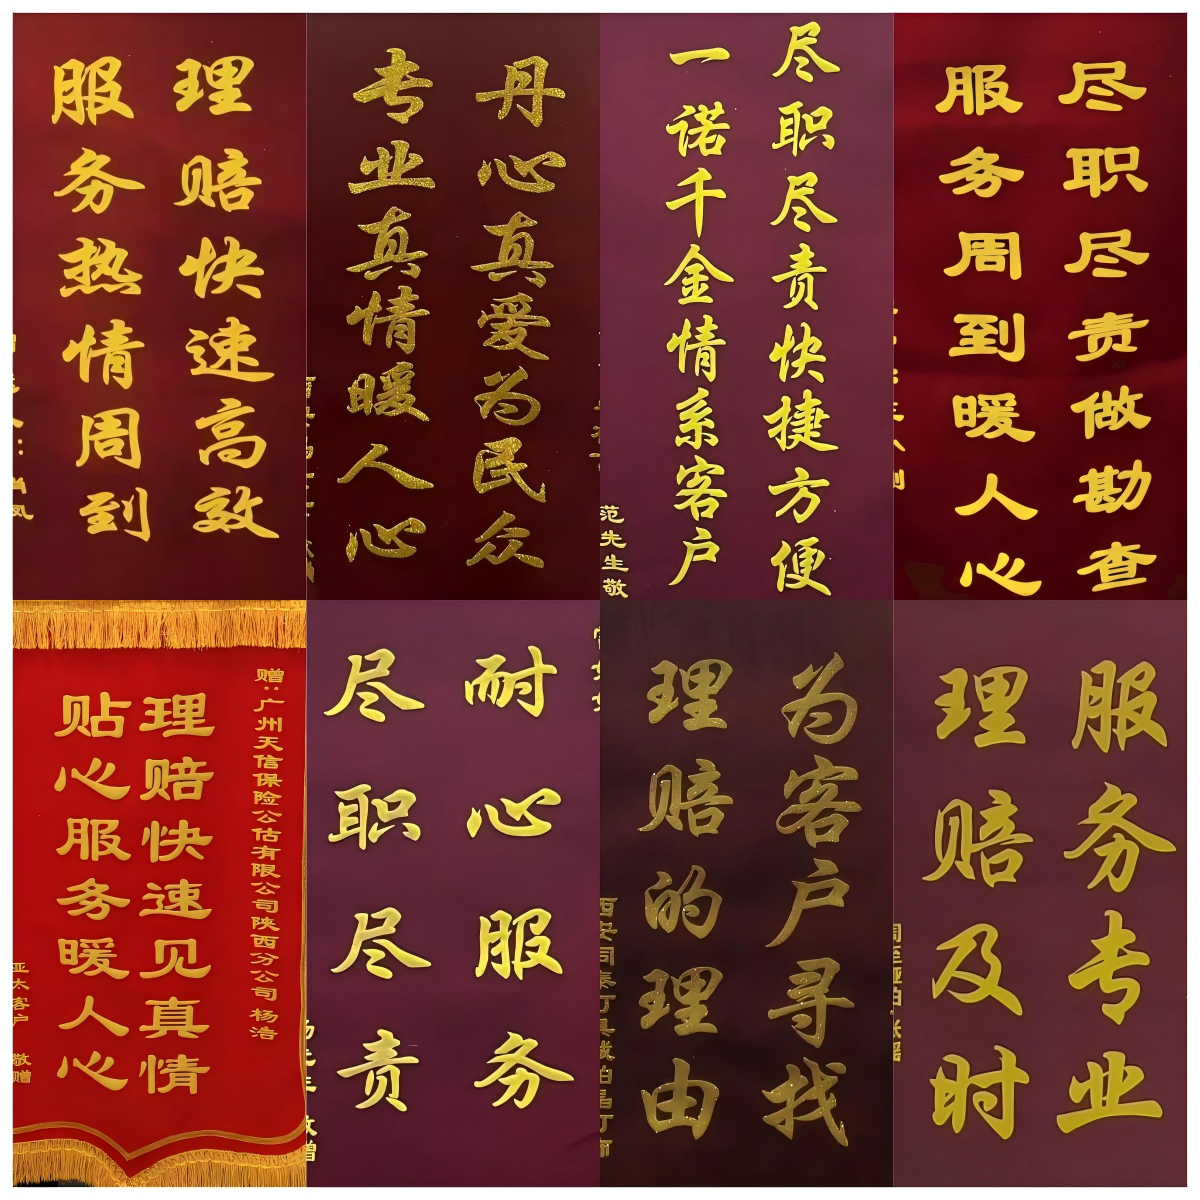 理赔快速高效
服务热情周到
丹心真爱为民众
专业真情暖人心
尽职尽责快捷方便
一诺千金情系客户
范先生敬
尽职尽责做勘查
服务周到暖人心
赠：广州天信保险公估有限公司陕西分公司 杨浩
理赔快速见真情
贴心服务暖人心
亚太客户 敬赠
耐心服务
尽职尽责
为客户寻找
理赔的理由
服务专业
理赔及时